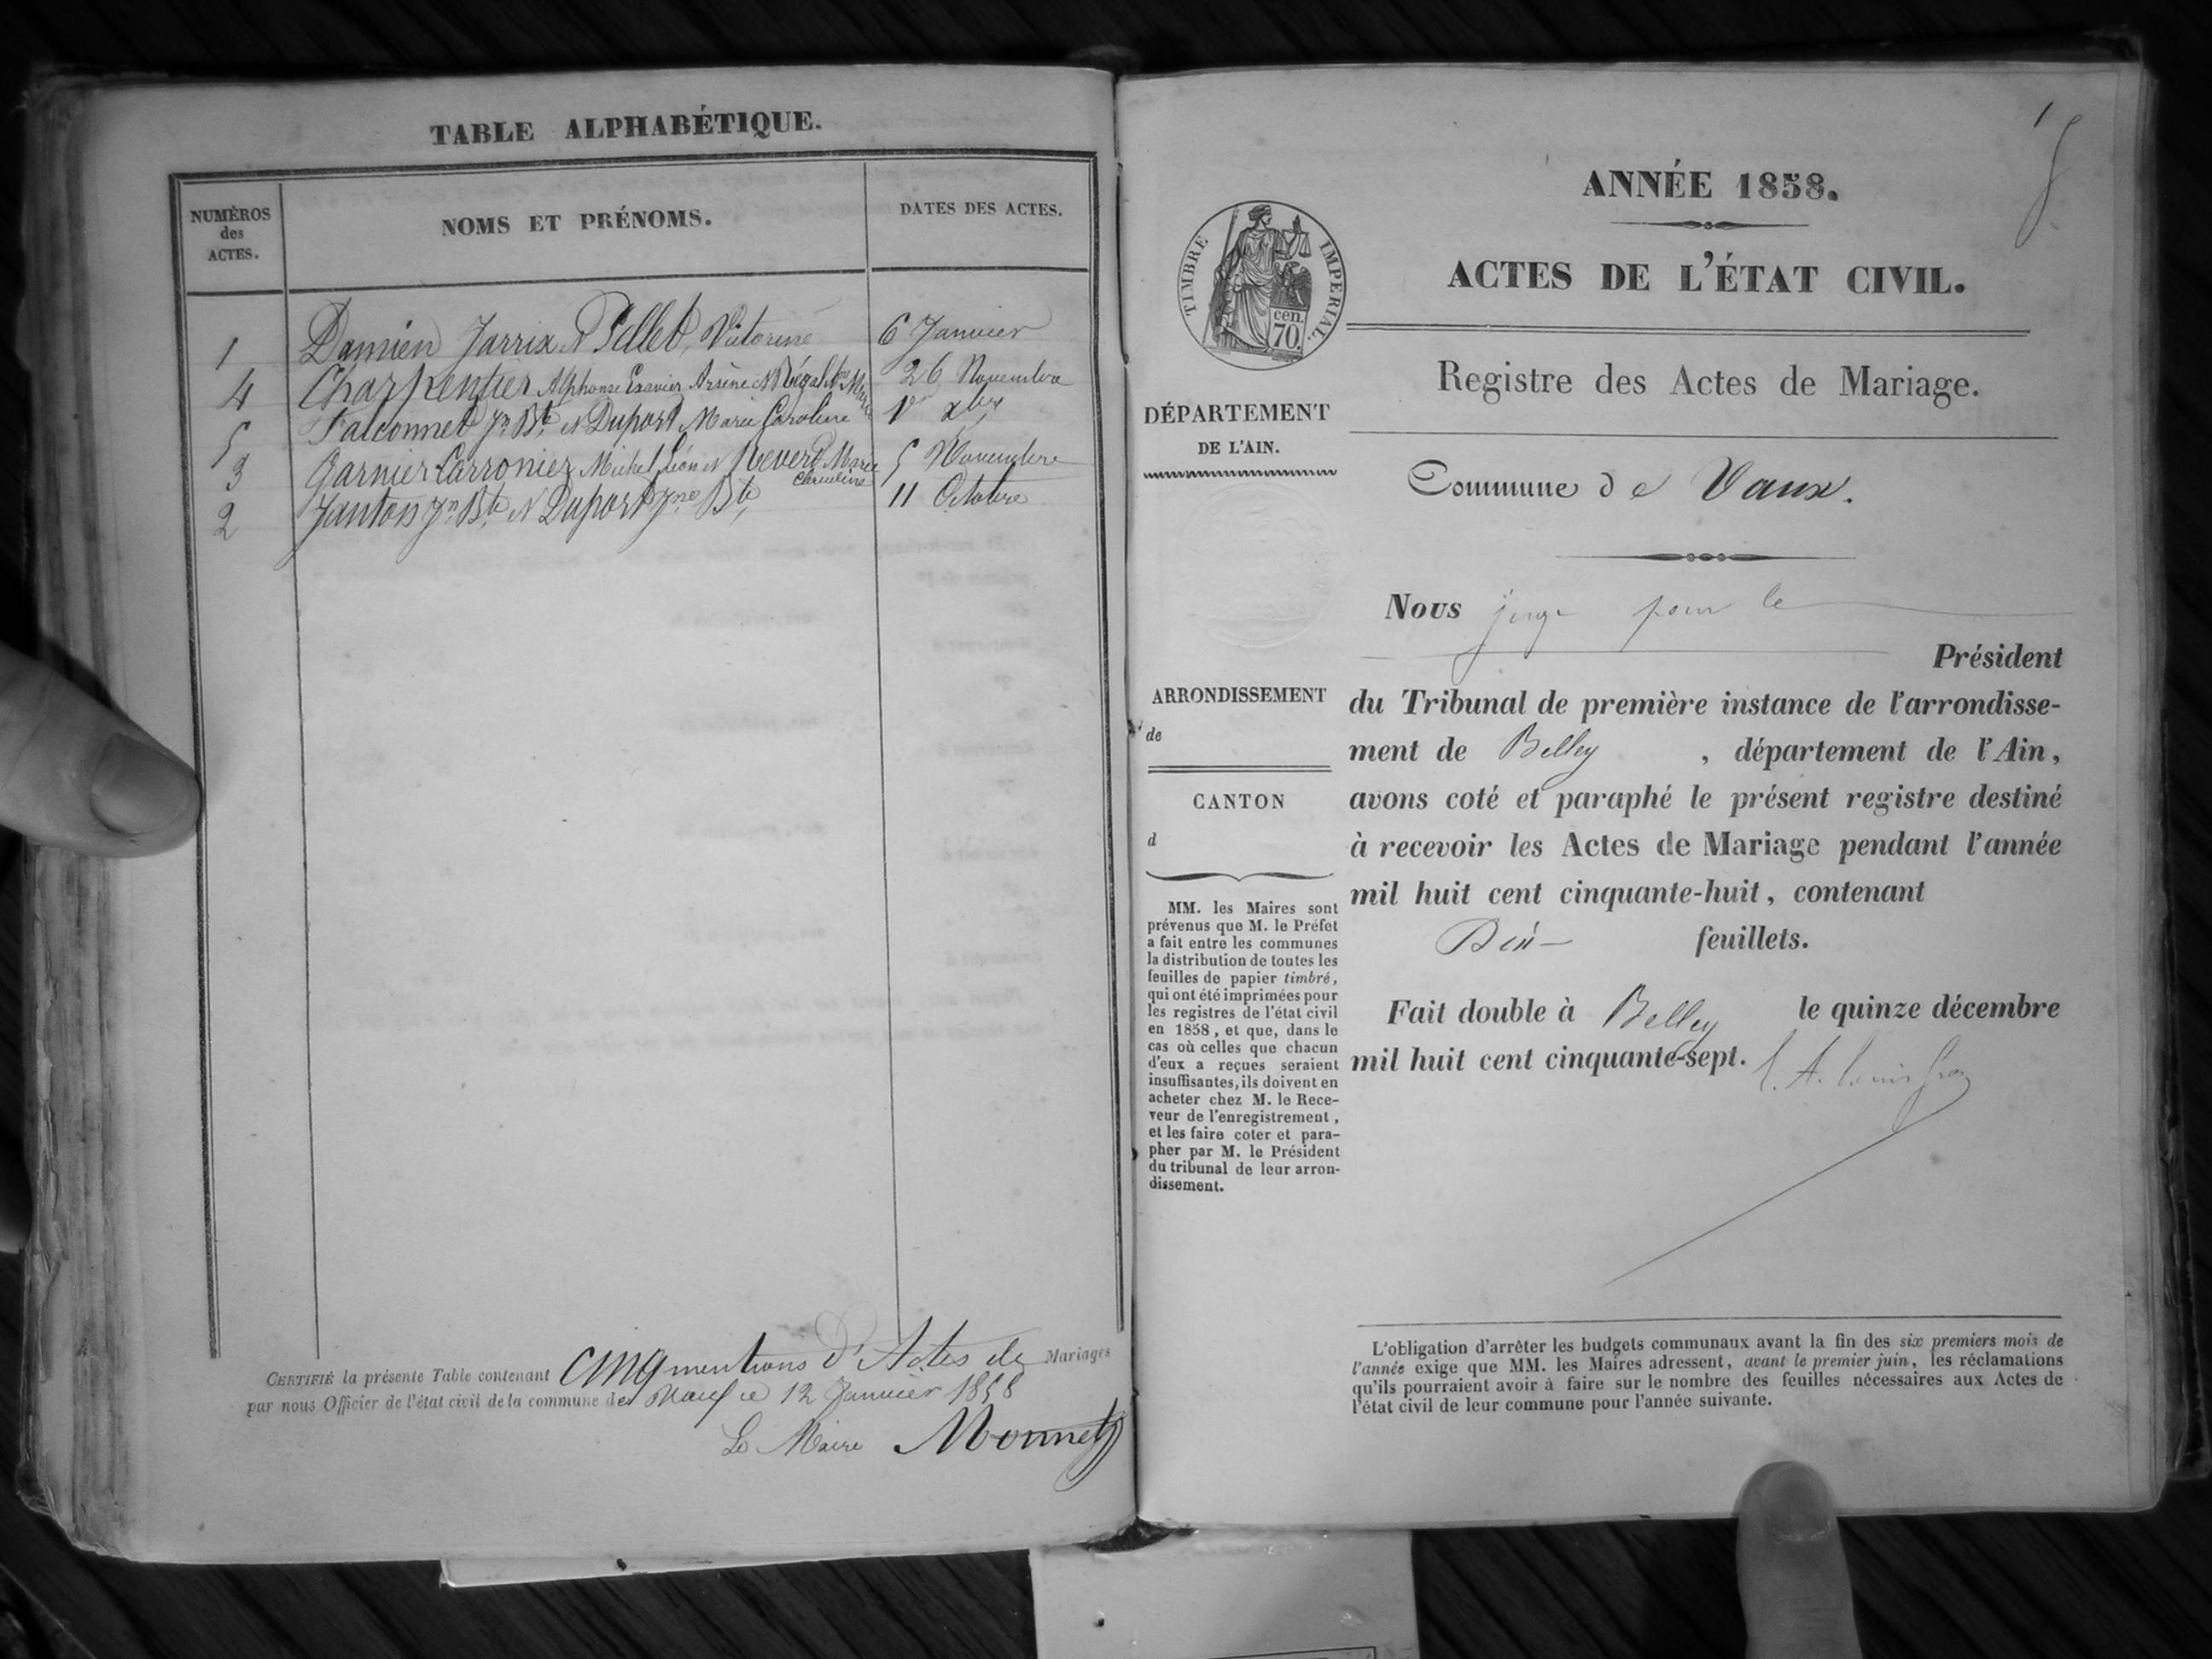 TABLE ALPHABÉTIQUE.
NUMÉROS des ACTES.
NOMS ET PRÉNOMS.
DATES DES ACTES.
1 Damien Jarrix et Pellet, Victorine 6 Janvier
4 Charpentier Alphonse Exavier Arsène et Marie 26 Novembre
5 Falconnet Jn Bte et Duport Marie Caroline 1er xbre
3 Garnier Carronier Michel Léon et Reverd Marie 5 Novembre
2 Janton Jn Bte et Duport Jne Bte 11 Octobre
CERTIFIÉ la présente Table contenant cinq mentions d'Actes de Mariages
par nous Officier de l'état civil de la commune de Vaux ce 12 Janvier 1858
Le Maire Monnet
1
ANNÉE 1858.
ACTES DE L'ÉTAT CIVIL.
TIMBRE IMPERIAL.
cen.
70.
Registre des Actes de Mariage.
Commune de Vaux.
DÉPARTEMENT
DE L'AIN.
ARRONDISSEMENT
de
CANTON
d
MM. les Maires sont
prévenus que M. le Préfet
a fait entre les communes
la distribution de toutes les
feuilles de papier timbré,
qui ont été imprimées pour
les registres de l'état civil
en 1858, et que, dans le
cas où celles que chacun
d'eux a reçues seraient
insuffisantes, ils doivent en
acheter chez M. le Rece-
veur de l'enregistrement,
et les faire coter et para-
pher par M. le Président
du tribunal de leur arron-
dissement.
Nous juge pour le
Président
du Tribunal de première instance de l'arrondisse-
ment de Belley , département de l'Ain,
avons coté et paraphé le présent registre destiné
à recevoir les Actes de Mariage pendant l'année
mil huit cent cinquante-huit, contenant
feuillets.
Fait double à Belley le quinze décembre
mil huit cent cinquante-sept.
L'obligation d'arrêter les budgets communaux avant la fin des six premiers mois de
l'année exige que MM. les Maires adressent, avant le premier juin, les réclamations
qu'ils pourraient avoir à faire sur le nombre des feuilles nécessaires aux Actes de
l'état civil de leur commune pour l'année suivante.